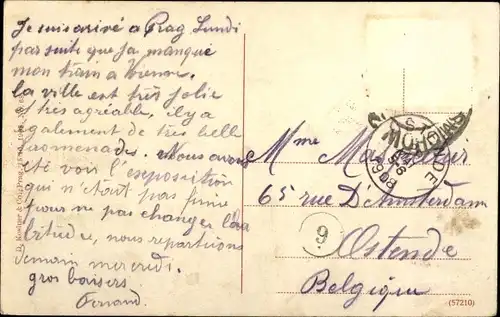 Je suis arrivé a Prag Lundi
par suite que ja manqué
mon train a Vienne.
la ville est très jolie
et très agréable, il y a
egalement de très belle
promenades. Nous avons
été voir l'exposition
qui n'était pas finie
pour ne pas changer
nous repartirons
demain mercredi.
gros baisers
Fernand.
Mme
65 rue D'Amsterdam
Ostende
Belgique
6
(57210)